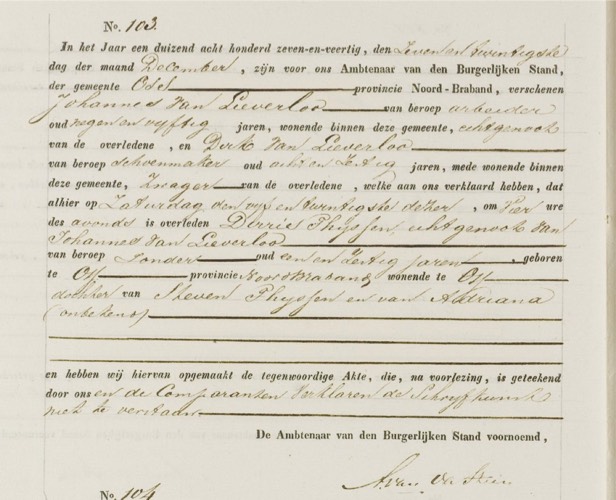 No. 103.
In het Jaar een duizend acht honderd zeven-en-veertig, den Zeven en twintigste
dag der maand December, zijn voor ons Ambtenaar van den Burgerlijken Stand,
der gemeente provincie Noord-Braband, verschenen
Johannes Van Lieverloo van beroep arbeider
oud negen en vyftig jaren, wonende binnen deze gemeente, echtgenoot
van de overledene, en Dirk Van Lieverloo
van beroep schoenmaker oud acht en Zestig jaren, mede wonende binnen
deze gemeente, Zwager van de overledene, welke aan ons verklaard hebben, dat
alhier op Zaturdag den vyf en twintigste dezer, om Vier ure
des avonds is overleden Dirrie Thyssen, echtgenoote Van
Johannes Van Lieverloo
van beroep Zonder oud een en Zestig jaren, geboren
te Oss provincie Noord Braband, wonende te Oss
dochter van Steven Thyssen en van Adriana
(onbekend)
en hebben wij hiervan opgemaakt de tegenwoordige Akte, die, na voorlezing, is geteekend
door ons en de Comparanten Verklaren de Schryfkunst
niet te verstaan
De Ambtenaar van den Burgerlijken Stand voornoemd,
No. 104